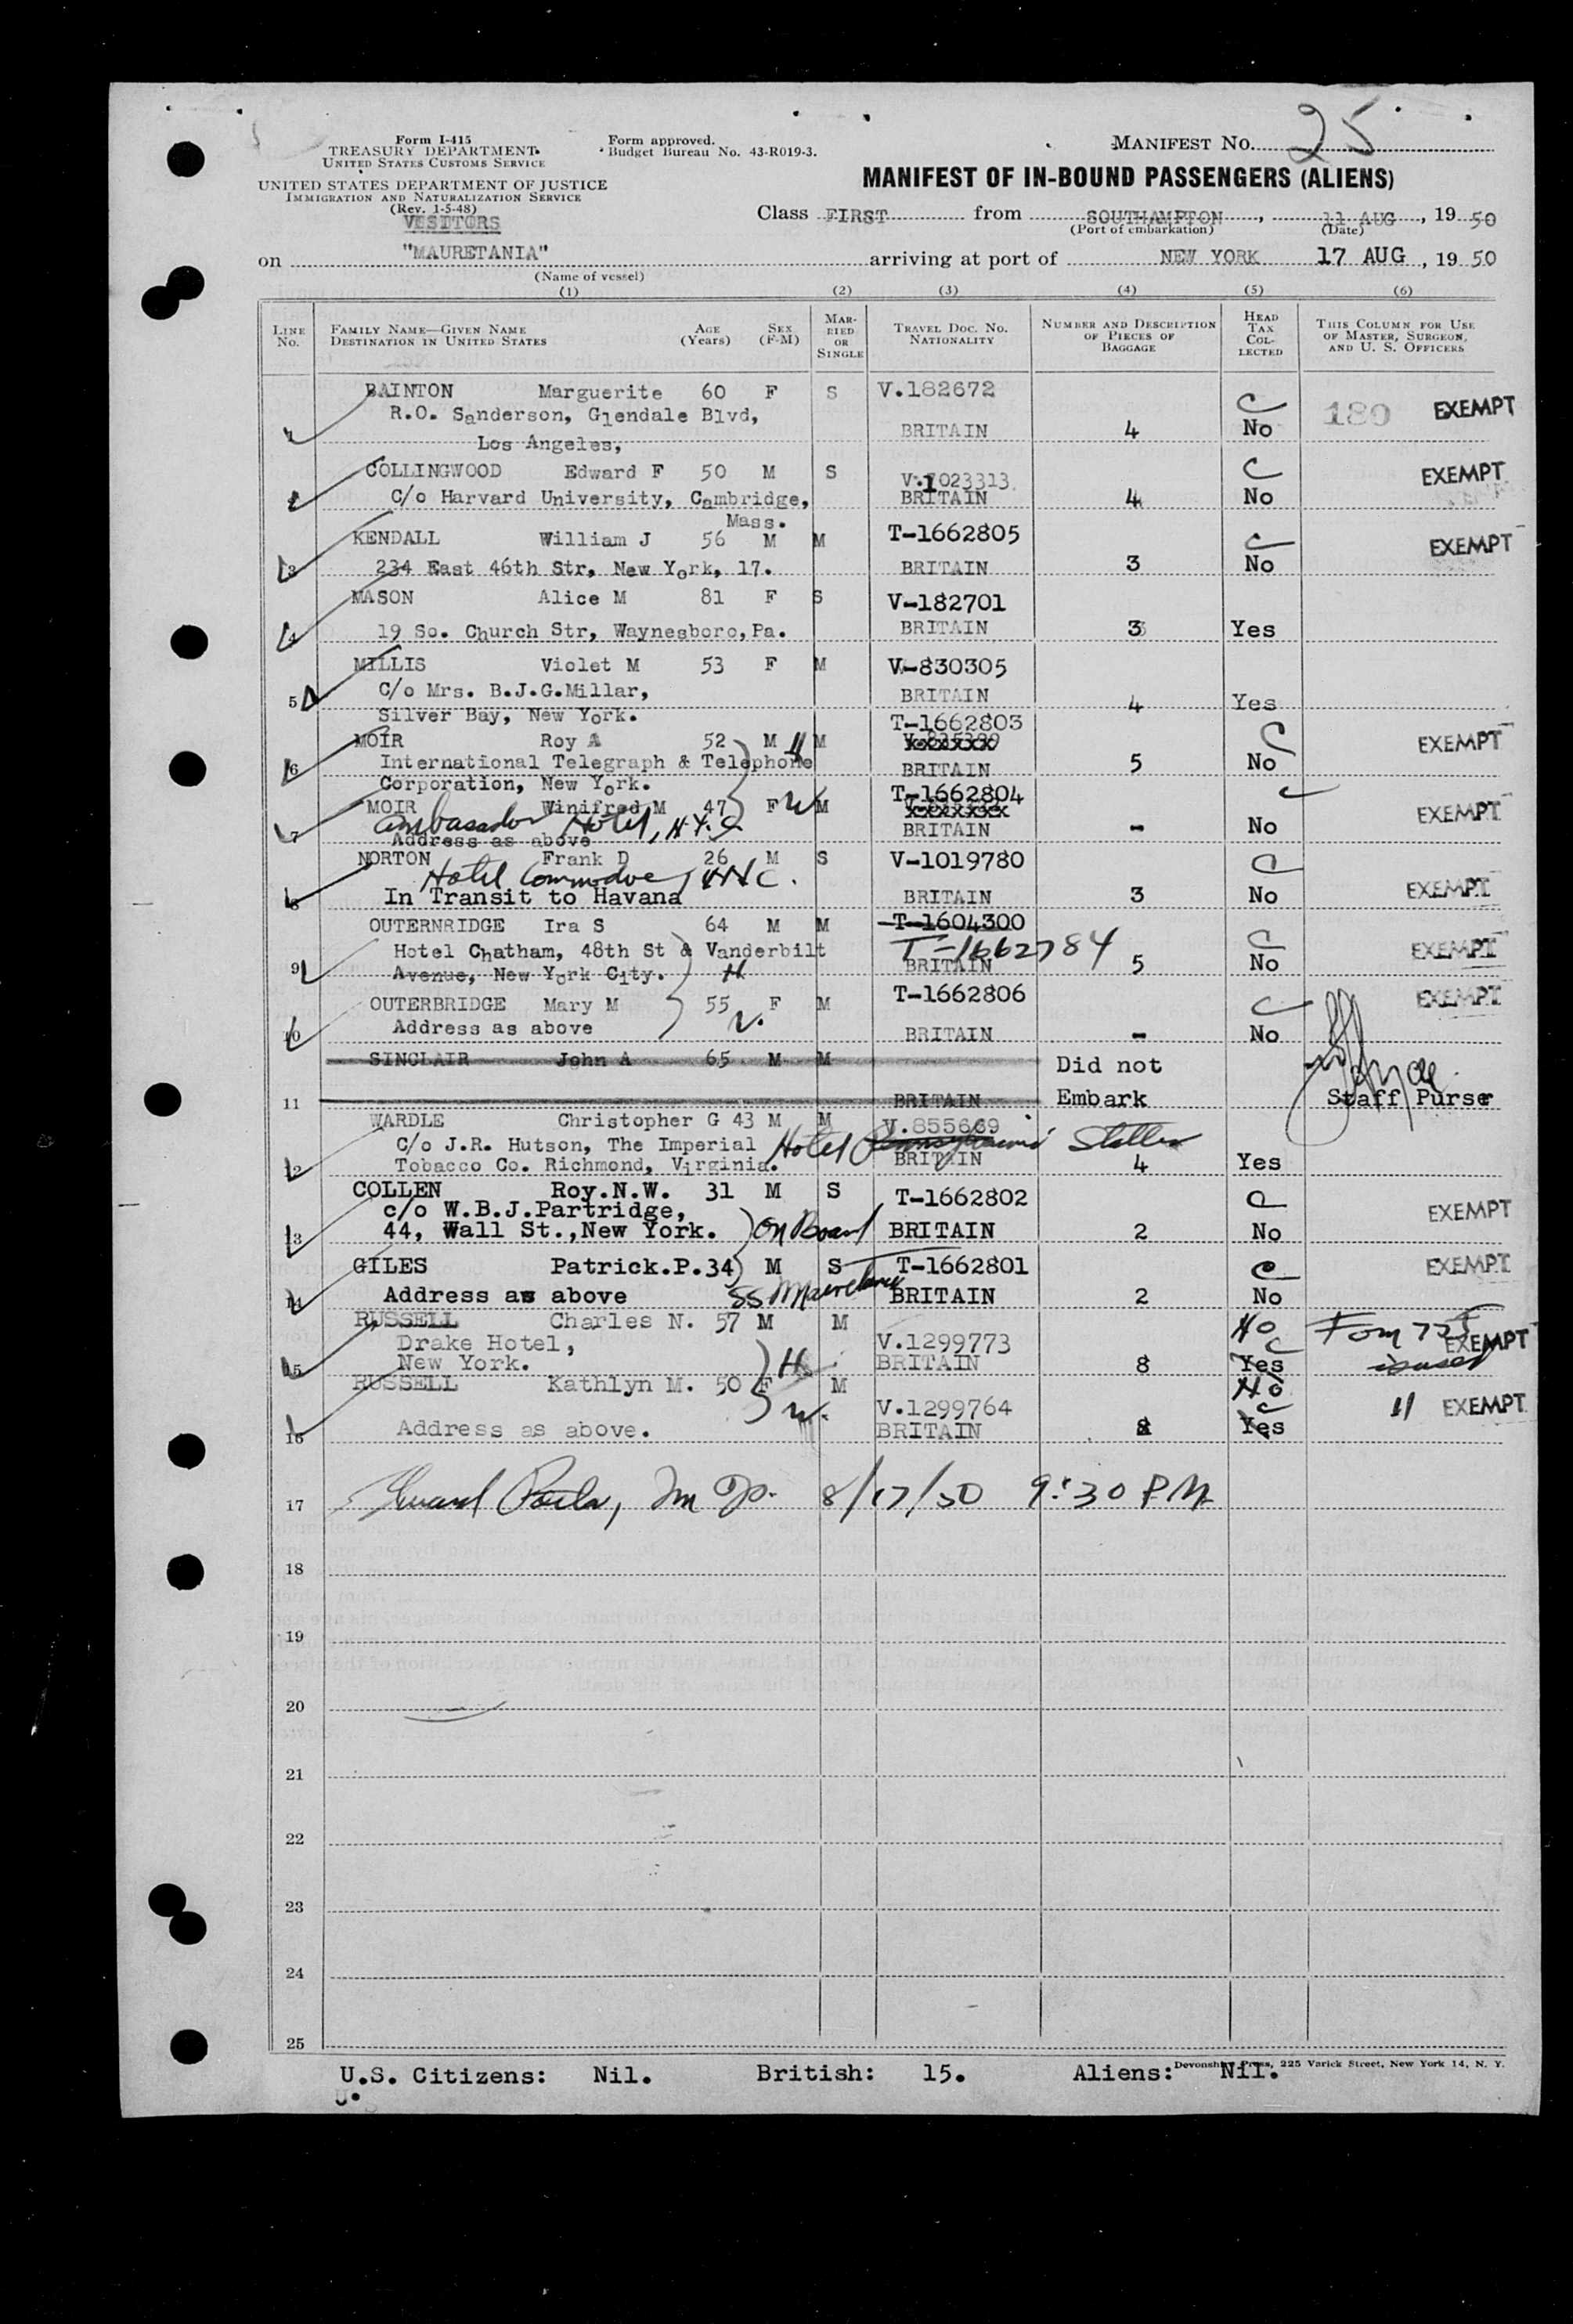 Form I-415
TREASURY DEPARTMENT
UNITED STATES CUSTOMS SERVICE
Form approved.
Budget Bureau No. 43-R019-3.
MANIFEST NO. 25
UNITED STATES DEPARTMENT OF JUSTICE
IMMIGRATION AND NATURALIZATION SERVICE
(Rev. 1-5-48)
VISITORS
MANIFEST OF IN-BOUND PASSENGERS (ALIENS)
Class FIRST from SOUTHAMPTON, 11 AUG, 19 50
(Port of embarkation) (Date)
on "MAURETANIA" arriving at port of NEW YORK 17 AUG, 19 50
(Name of vessel)
(1) (2) (3) (4) (5) (6)
LINE No. FAMILY NAME—GIVEN NAME DESTINATION IN UNITED STATES AGE (Years) SEX (F-M) MARRIED OR SINGLE TRAVEL DOC. NO. NATIONALITY NUMBER AND DESCRIPTION OF PIECES OF BAGGAGE HEAD TAX COLLECTED THIS COLUMN FOR USE OF MASTER, SURGEON, AND U. S. OFFICERS
BAINTON Marguerite 60 F S V.182672 C 180 EXEMPT
R.O. Sanderson, Glendale Blvd,
1 Los Angeles, BRITAIN 4 No
COLLINGWOOD Edward F 50 M S V.1023313 C EXEMPT
2 C/o Harvard University, Cambridge, BRITAIN 4 No
Mass.
KENDALL William J 56 M M T-1662805 C EXEMPT
3 234 East 46th Str, New York, 17. BRITAIN 3 No
MASON Alice M 81 F S V-182701
4 19 So. Church Str, Waynesboro, Pa. BRITAIN 3 Yes
MILLIS Violet M 53 F M V-830305
C/o Mrs. B.J.G.Millar, BRITAIN
5 Silver Bay, New York. 4 Yes
MOIR Roy A 52 M H M T-1662803 C EXEMPT
6 International Telegraph & Telephone BRITAIN 5 No
Corporation, New York.
MOIR Winifred M 47 F W M T-1662804 C EXEMPT
Ambassador Hotel, N.Y.C
7 Address as above BRITAIN - No
NORTON Frank D 26 M S V-1019780 C
Hotel Commodore, NYC.
8 In Transit to Havana BRITAIN 3 No EXEMPT
OUTERNRIDGE Ira S 64 M M T-1604300
Hotel Chatham, 48th St & Vanderbilt T-1662784 C EXEMPT
9 Avenue, New York City. H BRITAIN 5 No
OUTERBRIDGE Mary M 55 W. F M T-1662806 C EXEMPT
10 Address as above BRITAIN - No
SINCLAIR John A 65 M M Did not
11 BRITAIN Embark Staff Purser
WARDLE Christopher G 43 M M V.855669
C/o J.R. Hutson, The Imperial Hotel Pennsylvania Statler
12 Tobacco Co. Richmond, Virginia. BRITAIN 4 Yes
COLLEN Roy.N.W. 31 M S T-1662802 C EXEMPT
c/o W.B.J.Partridge,
13 44, Wall St., New York. On Board BRITAIN 2 No
GILES Patrick.P. 34 M S T-1662801 C EXEMPT
14 Address as above SS Mauretania BRITAIN 2 No
RUSSELL Charles N. 57 M M No Form 755
Drake Hotel, V.1299773 C EXEMPT
15 New York. H BRITAIN 8 Yes issued
RUSSELL Kathlyn M. 50 F M No
W. V.1299764 C 11 EXEMPT
16 Address as above. BRITAIN 8 Yes
17 8/17/50 9:30 PM
18
19
20
21
22
23
24
25
Devonshire Press, 225 Varick Street, New York 14, N. Y.
U.S. Citizens: Nil. British: 15. Aliens: Nil.
U.